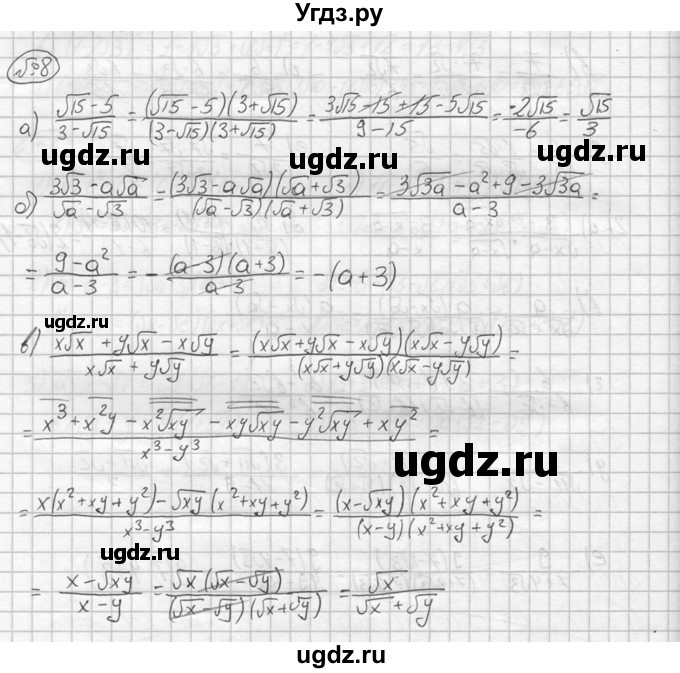 Угдз.ру
№8
а) (√15 - 5)/(3 - √15) = ((√15 - 5)(3 + √15))/((3 - √15)(3 + √15)) = (3√15 - 15 + 15 - 5√15)/(9 - 15) = (-2√15)/(-6) = √15/3
ugdz.ru ugdz.ru
б) (3√3 - a√a)/(√a - √3) = ((3√3 - a√a)(√a + √3))/((√a - √3)(√a + √3)) = (3√3a - a² + 9 - 3√3a)/(a - 3) =
ugdz.ru
= (9 - a²)/(a - 3) = - ((a - 3)(a + 3))/(a - 3) = -(a + 3)
ugdz.ru
в) (x√x + y√x - x√y)/(x√x + y√y) = ((x√x + y√x - x√y)(x√x - y√y))/((x√x + y√y)(x√x - y√y)) =
ugdz.ru
= (x³ + x²y - x²√xy - xy√xy - y²√xy + xy²)/(x³ - y³) =
ugdz.ru
= (x(x² + xy + y²) - √xy(x² + xy + y²))/(x³ - y³) = ((x - √xy)(x² + xy + y²))/((x - y)(x² + xy + y²)) =
ugdz.ru
= (x - √xy)/(x - y) = (√x(√x - √y))/((√x - √y)(√x + √y)) = √x/(√x + √y)
ugdz.ru